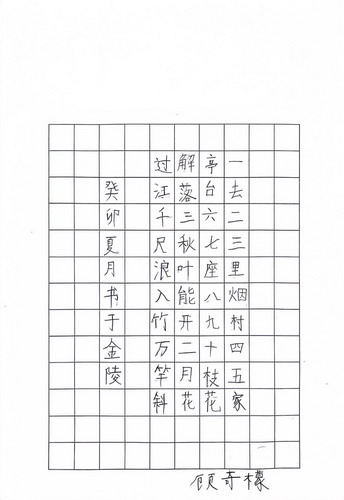 一去二三里烟村四五家
亭台六七座八九十枝花
解落三秋叶能开二月花
过江千尺浪入竹万竿斜
癸卯夏月书于金陵
顾奇檬